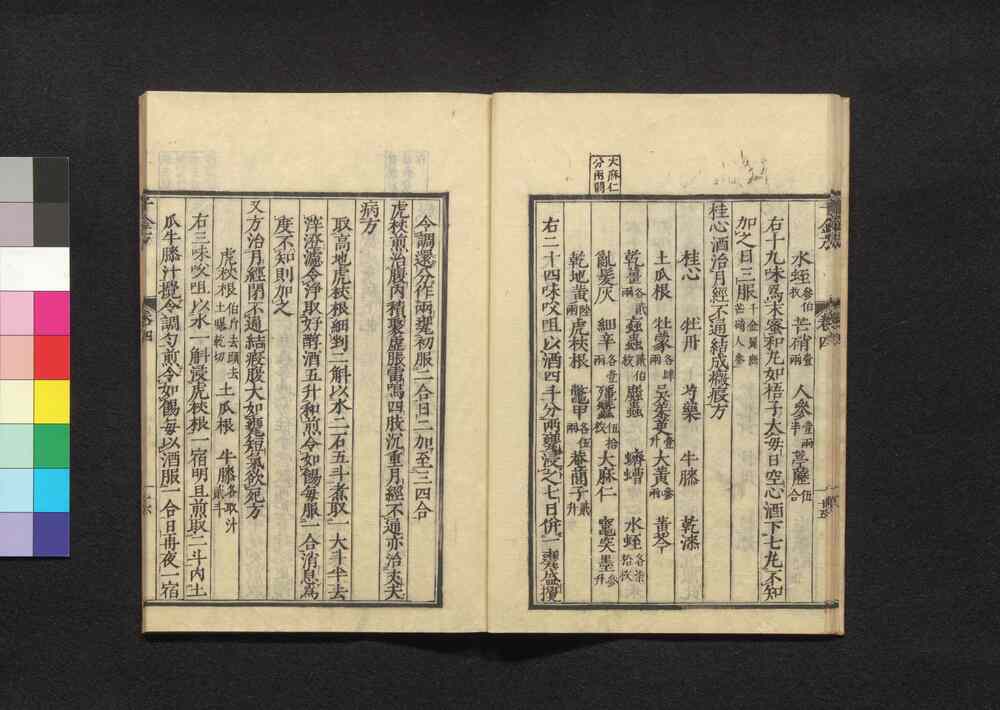 大麻仁
分兩闕
水蛭叁伯枚 芒硝壹兩 人參壹兩半 葶藶伍合
右十九味爲末蜜和丸如梧子大每日空心酒下七丸不知
加之日三服千金翼無芒硝人參
桂心酒治月經不通結成癥瘕方
桂心 牡丹 芍藥 牛膝 乾漆
土瓜根 牡蒙各肆兩 吳茱萸壹升 大黃叁兩 黃芩
乾薑各貳兩 虻蟲貳伯枚 䗪蟲 蠐螬 水蛭各柒拾枚
亂髮灰 細辛各壹兩 殭蠶伍拾枚 大麻仁 竈突墨叁升
乾地黃陸兩 虎杖根 鼈甲各伍兩 菴䕡子貳升
右二十四味㕮咀以酒四斗分兩甕浸之七日併一甕盛攪
令調還分作兩甕初服二合日二加至三四合
虎杖煎治腹內積聚虛脹雷鳴四肢沉重月經不通亦治丈夫
病方
取高地虎杖根細剉二斛以水二石五斗煮取一大斗半去
滓澄濾令淨取好醇酒五升和煎令如餳每服一合消息爲
度不知則加之
又方治月經閉不通結瘕腹大如甕短氣欲死方
虎杖根伯斤去頭去土曝乾切 土瓜根 牛膝各取汁貳斗
右三味㕮咀以水一斛浸虎杖根一宿明旦煎取二斗內土
瓜牛膝汁攪令調勻煎令如餳每以酒服一合日再夜一宿